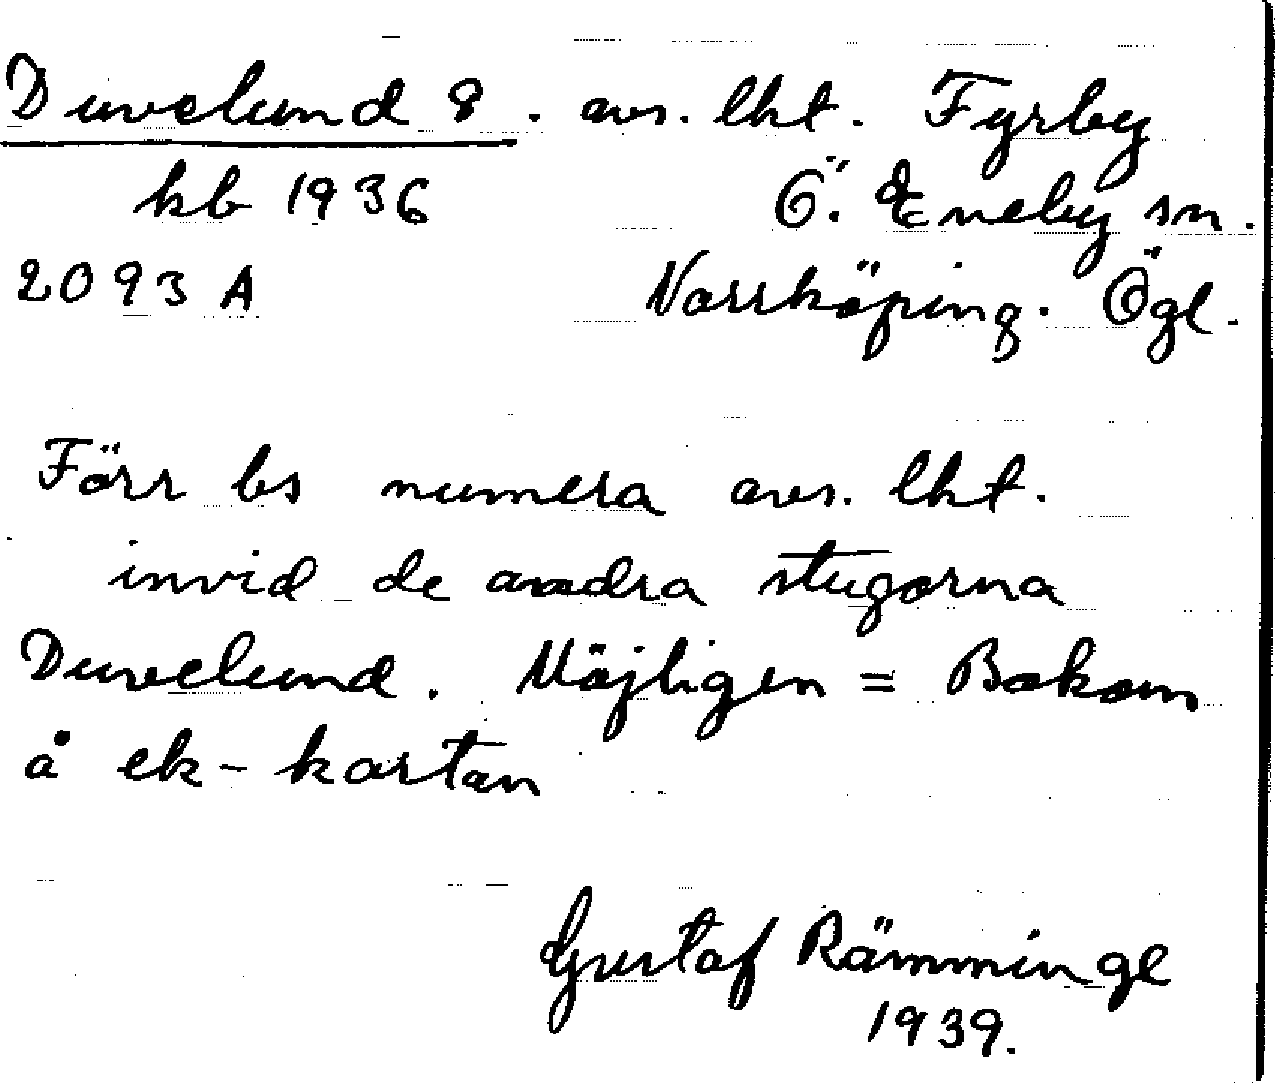 Duvelund 8. avs. lht. Fyrby
kb 1936 Ö. Eneby sn.
2093 A Norrköping. Ögl.
Förr bs numera avs. lht.
invid de andra stugorna
Duvelund. Möjligen = Bokom
å ek-kartan
Gustaf Rämminge
1939.